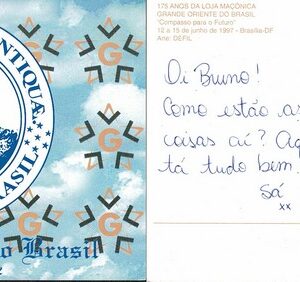 NTIQUÆ
RASIL
G
G
G
G
G
o Brasil
175 ANOS DA LOJA MAÇÔNICA
GRANDE ORIENTE DO BRASIL
"Compasso para o Futuro"
12 a 15 de junho de 1997 - Brasília-DF
Arte: DEFIL
Oi Bruno!
Como estão as
coisas aí? Aq
tá tudo bem.
Sá
xx